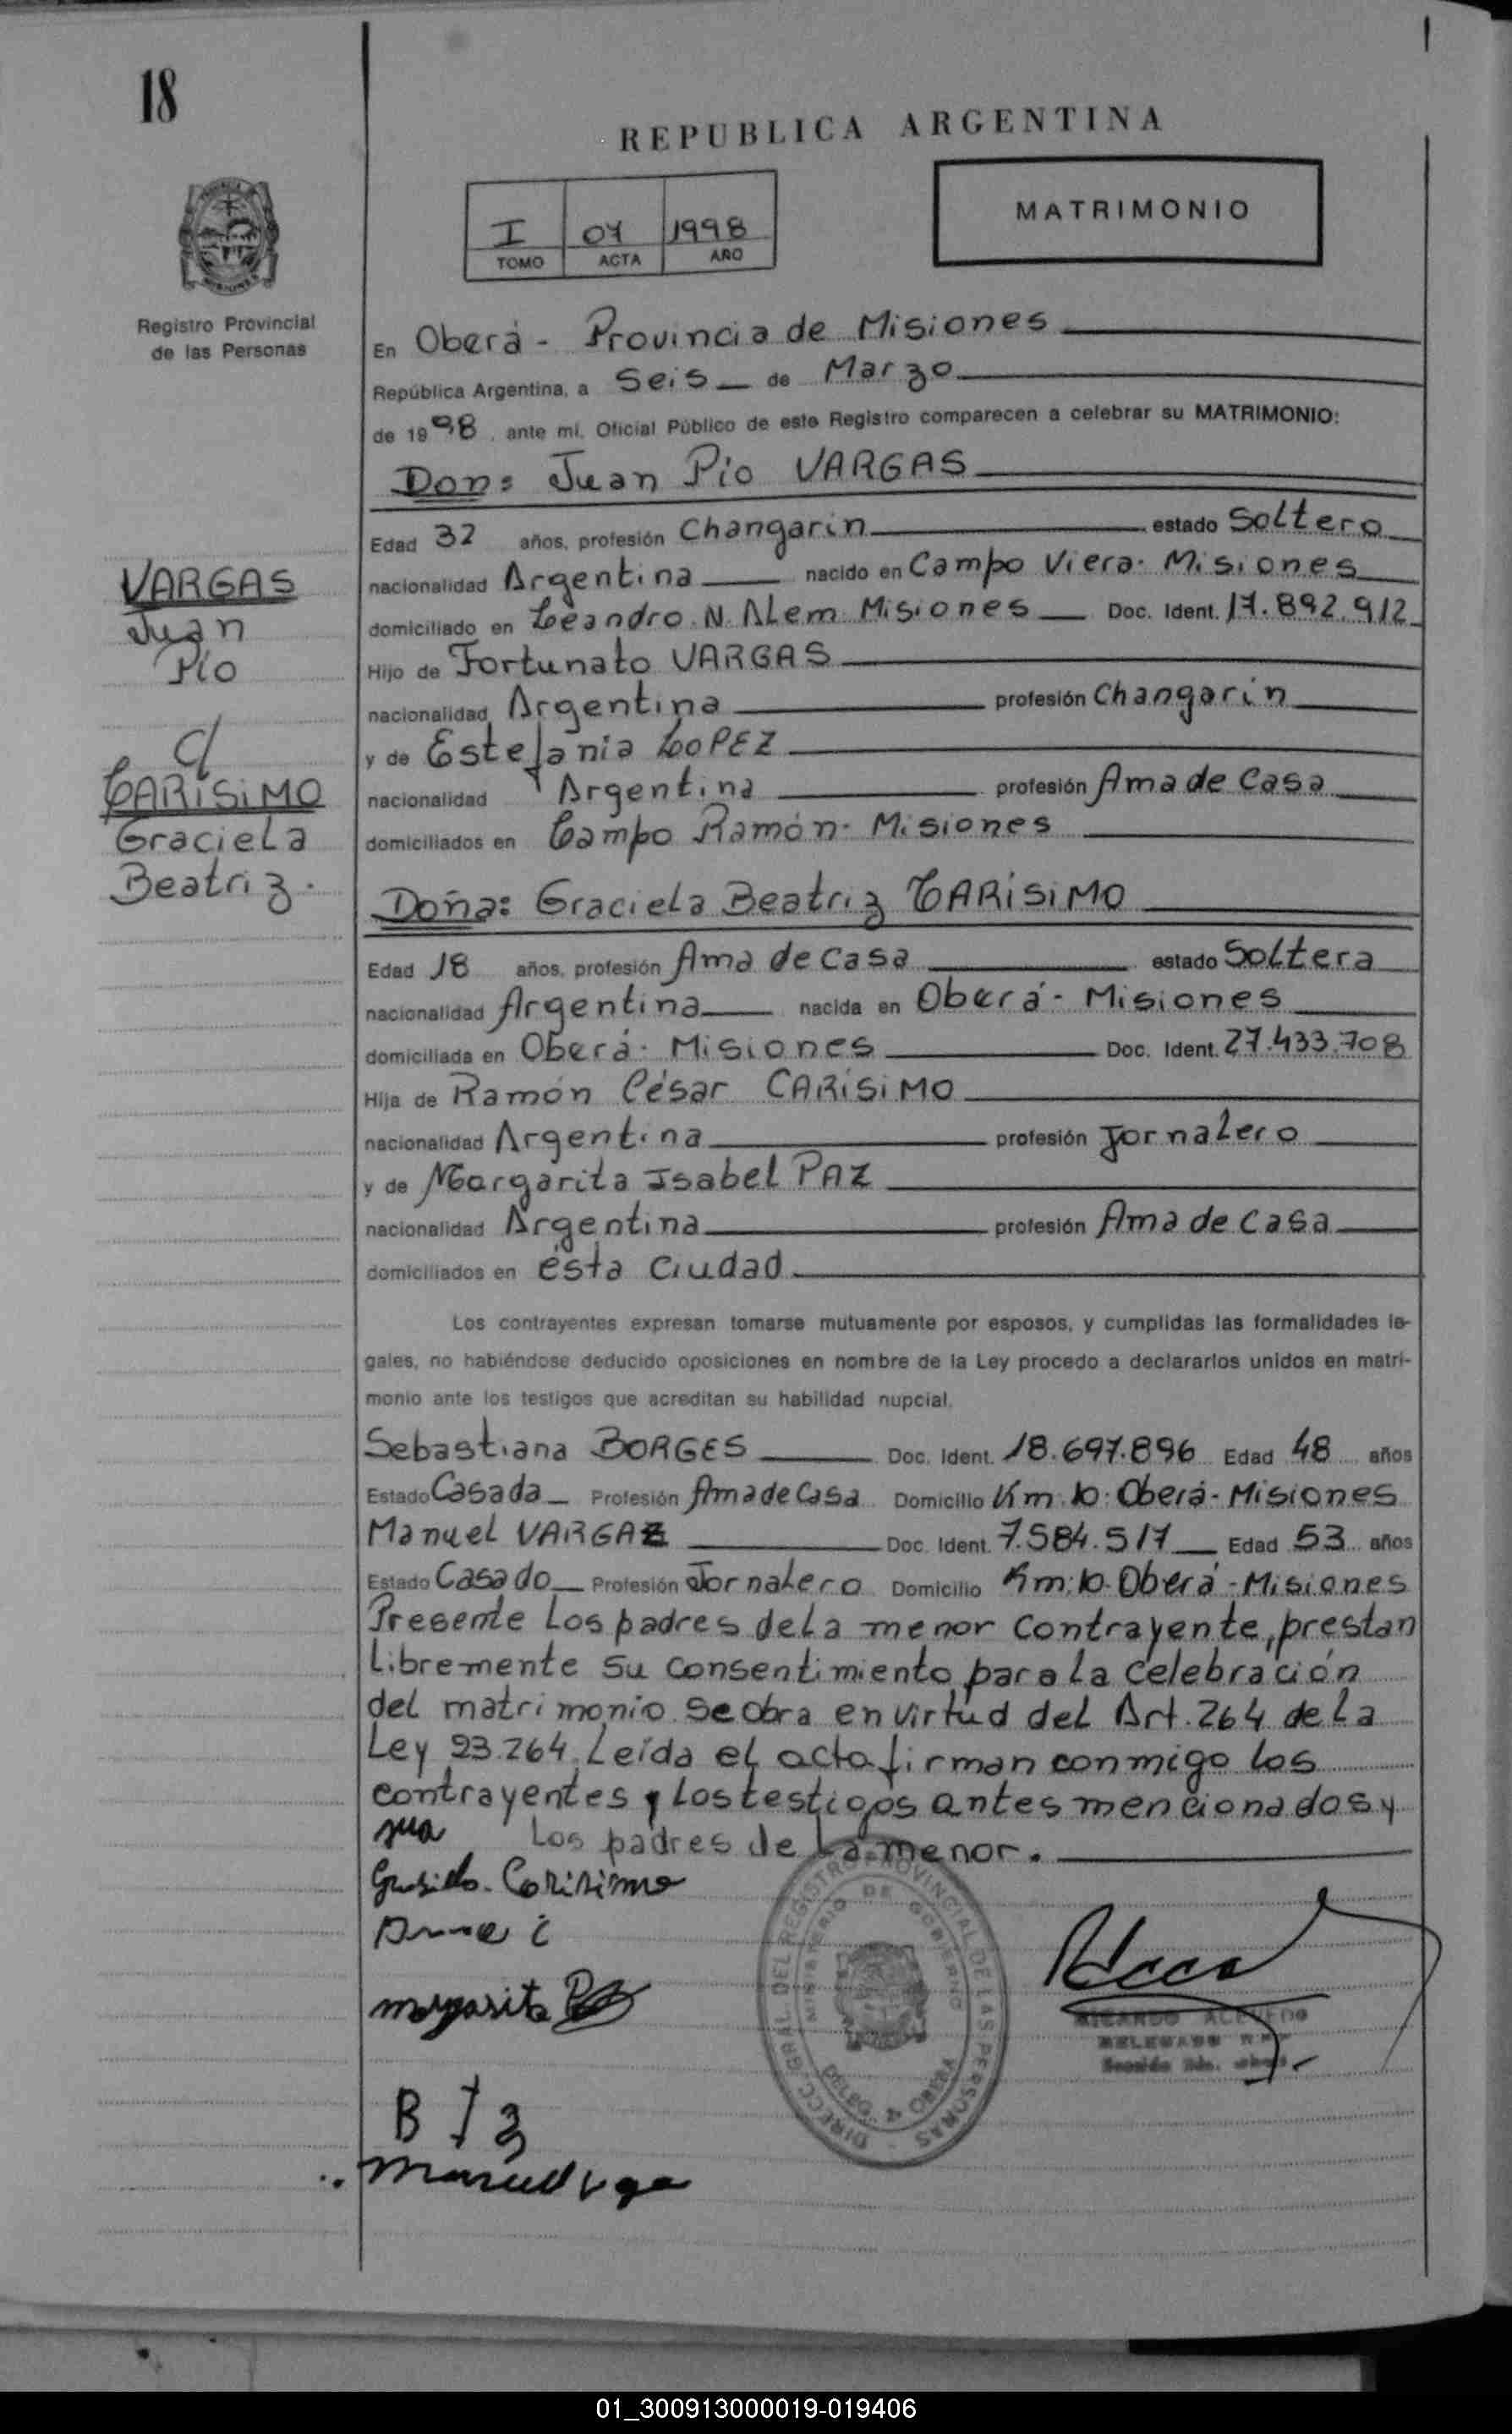 18
REPUBLICA ARGENTINA
I 07 1998
TOMO ACTA AÑO
MATRIMONIO
Registro Provincial
de las Personas
En Oberá - Provincia de Misiones
República Argentina, a Seis de Marzo
de 1998, ante mi, Oficial Público de este Registro comparecen a celebrar su MATRIMONIO:
Don: Juan Pío VARGAS
Edad 32 años, profesión Changarin estado Soltero
nacionalidad Argentina nacido en Campo Viera - Misiones
domiciliado en Leandro N. Alem Misiones Doc. Ident. 17.892.912
Hijo de Fortunato VARGAS
nacionalidad Argentina profesión Changarin
y de Estefania LOPEZ
nacionalidad Argentina profesión Ama de Casa
domiciliados en Campo Ramón - Misiones
VARGAS
Juan
Pío
c/
CARÍSIMO
Graciela
Beatriz.
Doña: Graciela Beatriz CARÍSIMO
Edad 18 años, profesión Ama de Casa estado Soltera
nacionalidad Argentina nacida en Oberá - Misiones
domiciliada en Oberá - Misiones Doc. Ident. 27.433.708
Hija de Ramón César CARÍSIMO
nacionalidad Argentina profesión Jornalero
y de Margarita Isabel PAZ
nacionalidad Argentina profesión Ama de Casa
domiciliados en ésta Ciudad
Los contrayentes expresan tomarse mutuamente por esposos, y cumplidas las formalidades le-
gales, no habiéndose deducido oposiciones en nombre de la Ley procedo a declararlos unidos en matri-
monio ante los testigos que acreditan su habilidad nupcial.
Sebastiana BORGES Doc. Ident. 18.697.896 Edad 48 años
Estado Casada Profesión Ama de Casa Domicilio Km: 10: Oberá - Misiones
Manuel VARGAS Doc. Ident. 7.584.517 Edad 53 años
Estado Casado Profesión Jornalero Domicilio Km: 10. Oberá - Misiones
Presente Los padres de La menor Contrayente, prestan
Libremente su Consentimiento para La Celebración
del matrimonio. Se obra en virtud del Art. 264 de La
Ley 23.264. Leída el acta firman conmigo los
contrayentes y Los testigos antes mencionados y
Los padres de La menor.
Carisimo
margarita
DIRECC. GRAL. DEL REGISTRO PROVINCIAL DE LAS PERSONAS
MINISTERIO DE GOBIERNO
DELEG. OBERA
RICARDO ACEVEDO
DELEGADO
B
01_300913000019-019406